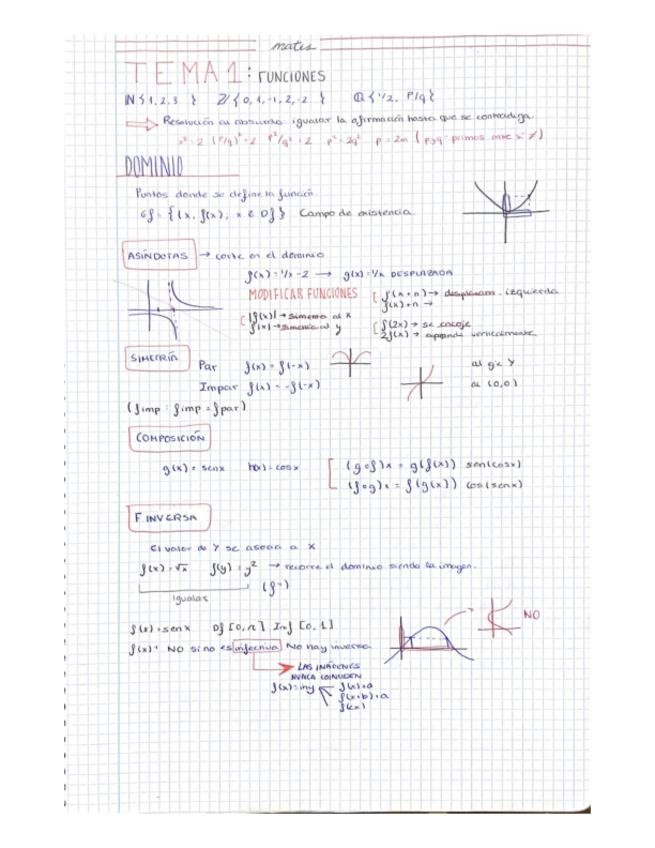 mates
TEMA 1: FUNCIONES
ℕ{1, 2, 3 } ℤ{0, 1, -1, 2, -2 } ℚ{1/2, P/q}
Resolución al absurdo: igualar la afirmación hasta que se contradiga.
x²=2 (P/q)²=2 P²/q²=2 p²=2q² p=2m (p y q: primos entre sí ≠)
DOMINIO
Puntos donde se define la función.
Gf = {(x, f(x), x ∈ Df} Campo de existencia.
ASÍNDOTAS → corte en el dominio
f(x) = 1/x-2 → g(x) = 1/x DESPLAZADA
MODIFICAR FUNCIONES [ f(x+n) → desplazam. izquierda
f(x)+n →
[ |f(x)| → simetria al x [ f(2x) → se encoje
f|x| → simetria al y 2f(x) → expande verticalmente
SIMETRÍA
Par f(x) = f(-x) al eje Y
Impar f(x) = -f(-x) al (0,0)
(f imp · f imp = f par)
COMPOSICIÓN
g(x) = senx h(x) = cosx [ (g∘f)x = g(f(x)) sen(cosx)
(f∘g)x = f(g(x)) cos(senx)
F. INVERSA
El valor de Y se asocia a X
f(x) = √x f(y) = y² → recorre el dominio siendo la imagen.
iguales (f⁻¹)
f(x) = senx Df [0, π] Imf [0, 1]
NO
f(x)⁻¹ NO si no es injectiva No hay inversa
LAS IMÁGENES
NUNCA COINCIDEN
f(x) = iny f(x)+a
f(x+b)+a
f(cx)